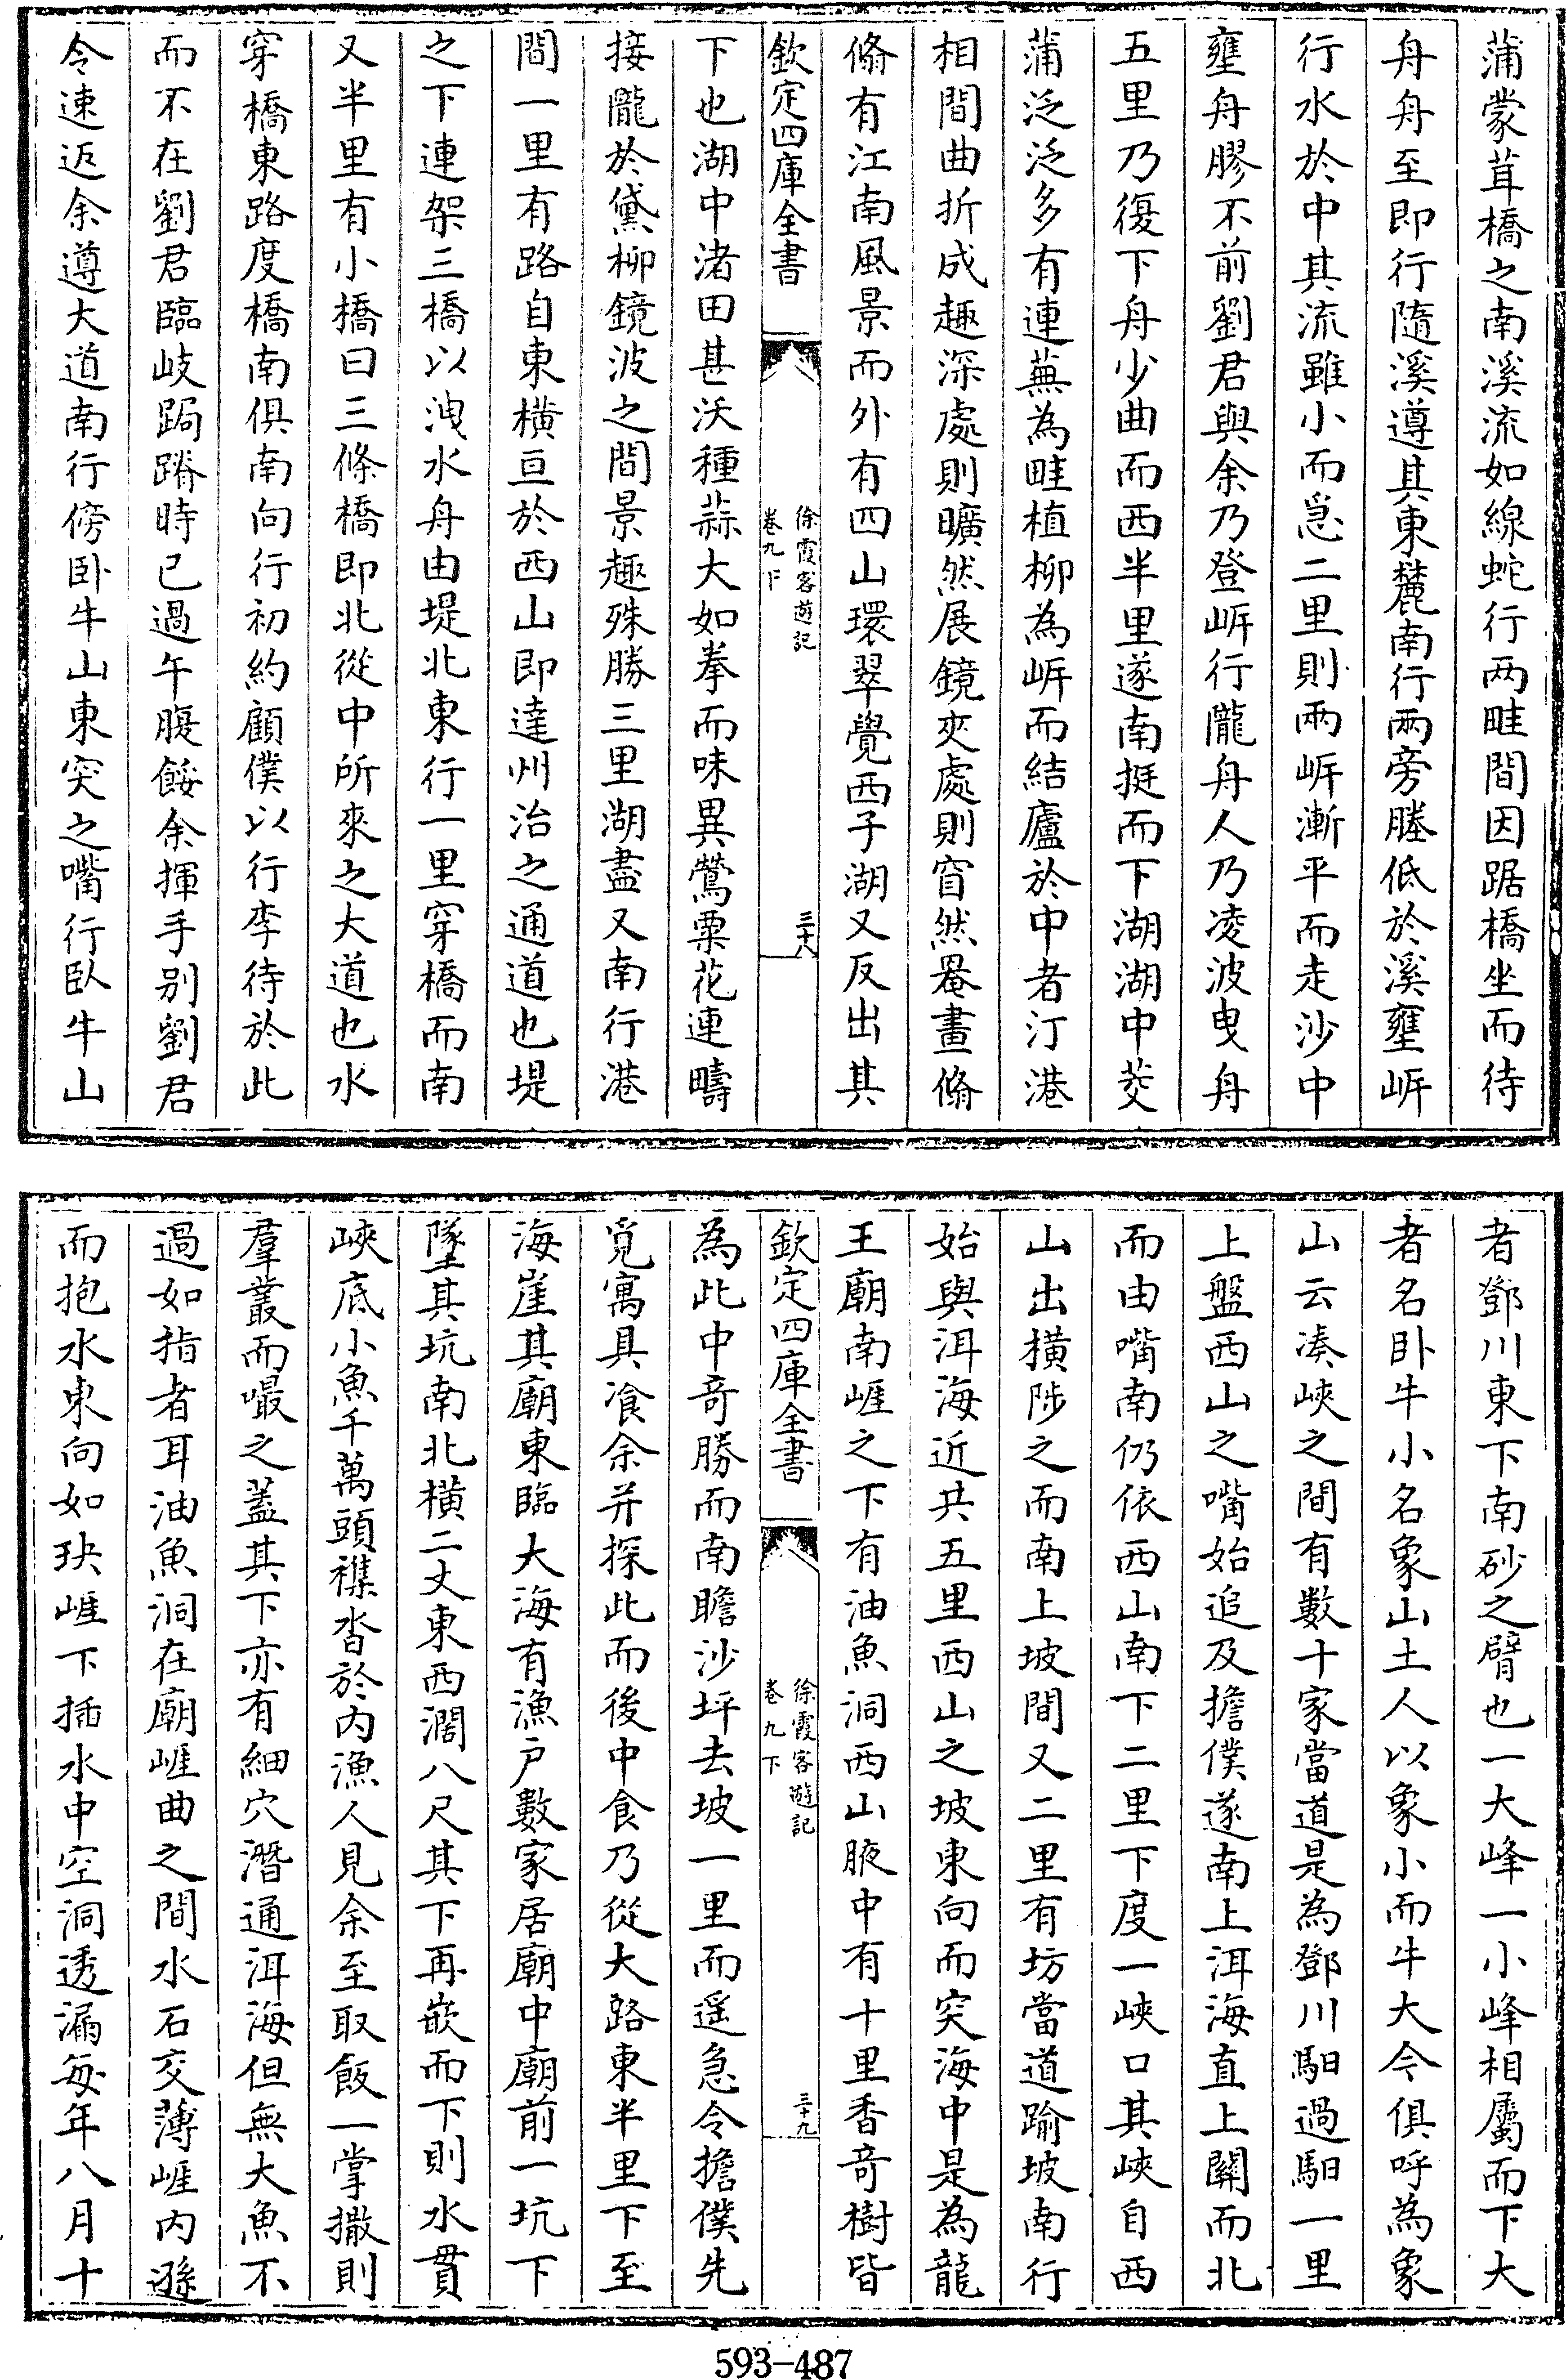 蒲蒙茸橋之南溪流如線蛇行两畦間因踞橋坐而待
舟舟至即行隨溪遵其東麓南行兩旁塍低於溪壅岸
行水於中其流雖小而急二里則兩岸漸平而走沙中
壅舟膠不前劉君與余乃登岸行隴舟人乃凌波曳舟
五里乃復下舟少曲而西半里遂南挺而下湖湖中茭
蒲泛泛多有連蕪為畦植柳為岸而結廬於中者汀港
相間曲折成趣深處則曠然展鏡夾處則窅然罨畫翛
翛有江南風景而外有四山環翠覺西子湖又反出其
欽定四庫全書
徐霞客遊記
卷九下
三十八
下也湖中渚田甚沃種蒜大如拳而味異鶯粟花連疇
接隴於黛柳鏡波之間景趣殊勝三里湖盡又南行港
間一里有路自東橫亘於西山即達州治之通道也堤
之下連架三橋以洩水舟由堤北東行一里穿橋而南
又半里有小橋曰三條橋即北從中所來之大道也水
穿橋東路度橋南俱南向行初約顧僕以行李待於此
而不在劉君臨岐跼蹐時已過午腹餒余揮手别劉君
令速返余遵大道南行傍卧牛山東突之嘴行臥牛山
者鄧川東下南砂之臂也一大峰一小峰相屬而下大
者名卧牛小名象山土人以象小而牛大今俱呼為象
山云凑峽之間有數十家當道是為鄧川馹過馹一里
上盤西山之嘴始追及擔僕遂南上洱海直上關而北
而由嘴南仍依西山南下二里下度一峽口其峽自西
山出横陟之而南上坡間又二里有坊當道踰坡南行
始與洱海近共五里西山之坡東向而突海中是為龍
王廟南崕之下有油魚洞西山腋中有十里香奇樹皆
欽定四庫全書
徐霞客遊記
卷九下
三十九
為此中奇勝而南瞻沙坪去坡一里而遥急令擔僕先
覓寓具飡余并探此而後中食乃從大路東半里下至
海崖其廟東臨大海有漁户數家居廟中廟前一坑下
墜其坑南北横二丈東西濶八尺其下再嵌而下則水貫
峽底小魚千萬頭襍沓於内漁人見余至取飯一掌撒則
羣叢而嘬之蓋其下亦有細穴潛通洱海但無大魚不
過如指者耳油魚洞在廟崕曲之間水石交薄崕内遜
而抱水東向如玦崕下插水中空洞透漏每年八月十
593-487